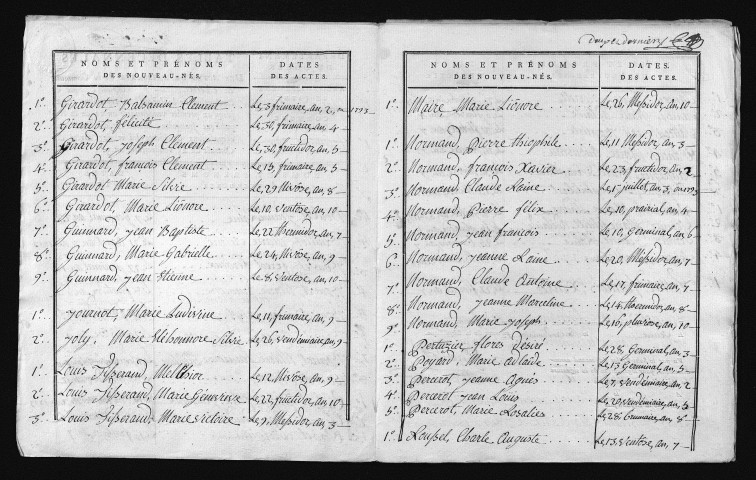 NOMS ET PRÉNOMS DES NOUVEAU-NÉS.
DATES DES ACTES.
1° Girardot, Balsamin Clement Le, 3 frimaire, an, 2,
2° Girardot, félicité Le, 30, frimaire, an 4
3° Girardot, joseph Clement Le, 30, fructidor, an, 5
4° Girardot, françois Clement Le, 15, frimaire, an, 5
5° Girardot Marie Silvre Le, 29 Nivose, an, 8
6° Girardot, Marie Liônore Le, 10, ventose, an, 10
7° Guinnard, jean Baptiste Le, 22 thermidor, an, 7
8° Guinnard, Marie Gabrielle Le, 24, Nivose, an, 9
9° Guinnard, jean Etienne Le, 8, ventose, an, 10
1° journot, Marie Ludivine Le, 11, frimaire, an, 9
2° joly, Marie Silvie Le, 26, vendémaire, an, 9
1° Louis Tisserand, Melchior Le, 12, Nivose, an, 9
2° Louis Tisserand, Marie Génevieve Le, 22, fructidor, an, 10
3° Louis Tisserand, Marie victoire Le, 9, Messidor, an, 3
NOMS ET PRÉNOMS DES NOUVEAU-NÉS.
DATES. DES ACTES.
1° Maire, Marie Liônore Le, 26, Messidor, an, 10
1° Normand, pierre théophile Le, 11 Messidor, an, 3
2° Normand, françois Xavier Le, 23, fructidor, an, 2
3° Normand, Claude Laine Le, 1er juillet, an, 3,
4° Normand, Pierre félix Le, 10, prairial, an, 4
5° Normand, jean françois Le, 10, Germinal, an, 6
6° Normand, jeanne Laine Le, 20, Messidor, an, 7
7° Normand, Claude Antoine Le, 17, frimaire, an, 7
8° Normand, jeanne Marceline Le, 14, thermidor, an, 8
9° Normand, Marie joseph Le, 16, pluviose, an, 10
1° Pertuzier, flores Désiré Le, 28, Germinal, an, 3
2° Poyard, Marie adlaide Le, 13 Germinal, an, 5
3° Percerot, jeanne Agnès Le, 7, vendémiaire, an, 2
4° Percerot jean Louis Le, 20 vendémiaire, an, 5
5° Percerot, Marie Rosalies Le, 28, brumaire, an, 8
1° Roussel, Charle Auguste Le, 13, ventose, an, 7